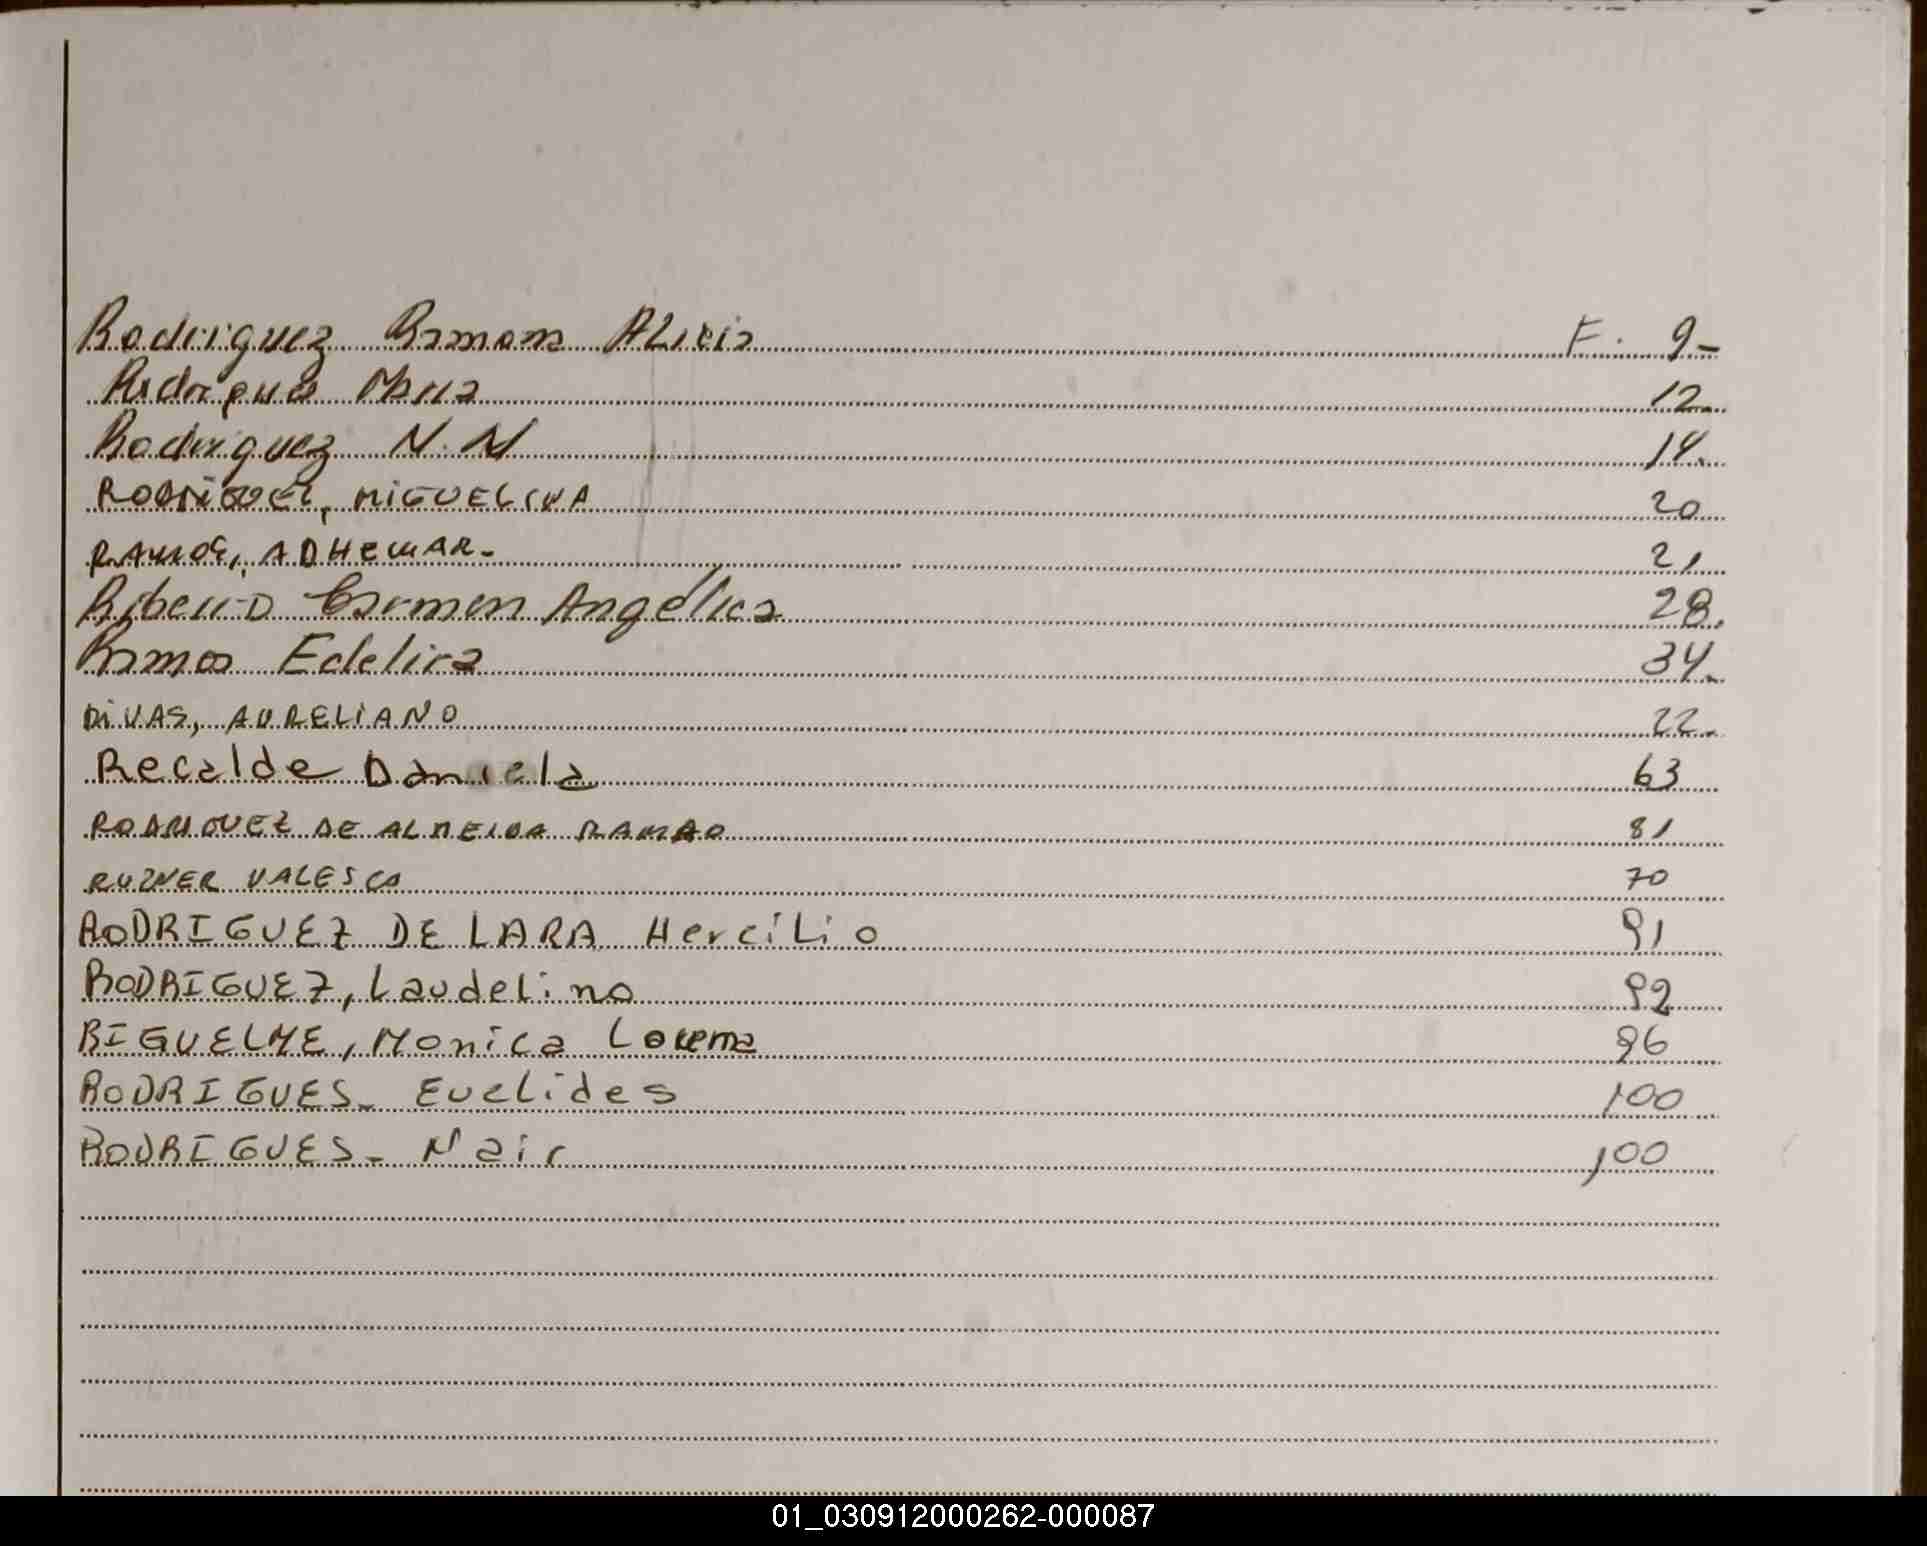 Rodriguez Ramona Alicia F. 9-
Rodrigues Maria 12.
Rodriguez N.N 14.
RODRIGUEZ, MIGUELINA 20
RAMOS, ADHEMAR- 21
Ribeiro Carmen Angélica 28.
Ramos Edelira 34.
DIVAS, AURELIANO 22.
Recalde Daniela 63
RODRIGUEZ DE ALMEIDA RAMAO 81
RUZNER VALESCA 70
RODRIGUEZ DE LARA HerciLio 91
RODRIGUEZ, LaudeLino 92
RIGUELME, Monica Lorena 96
RODRIGUES- Euclides 100
RODRIGUES- Nair 100
01_030912000262-000087